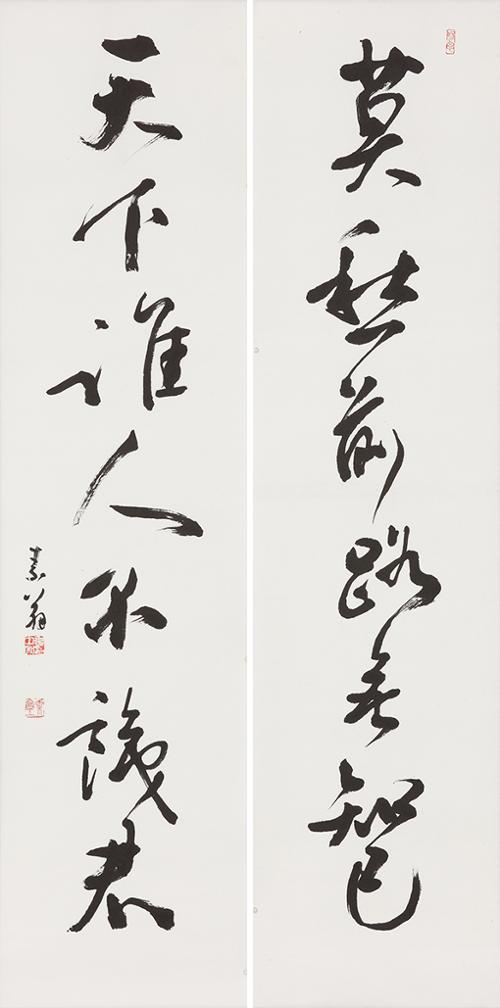 莫愁前路无知己
天下谁人不識君
素翁